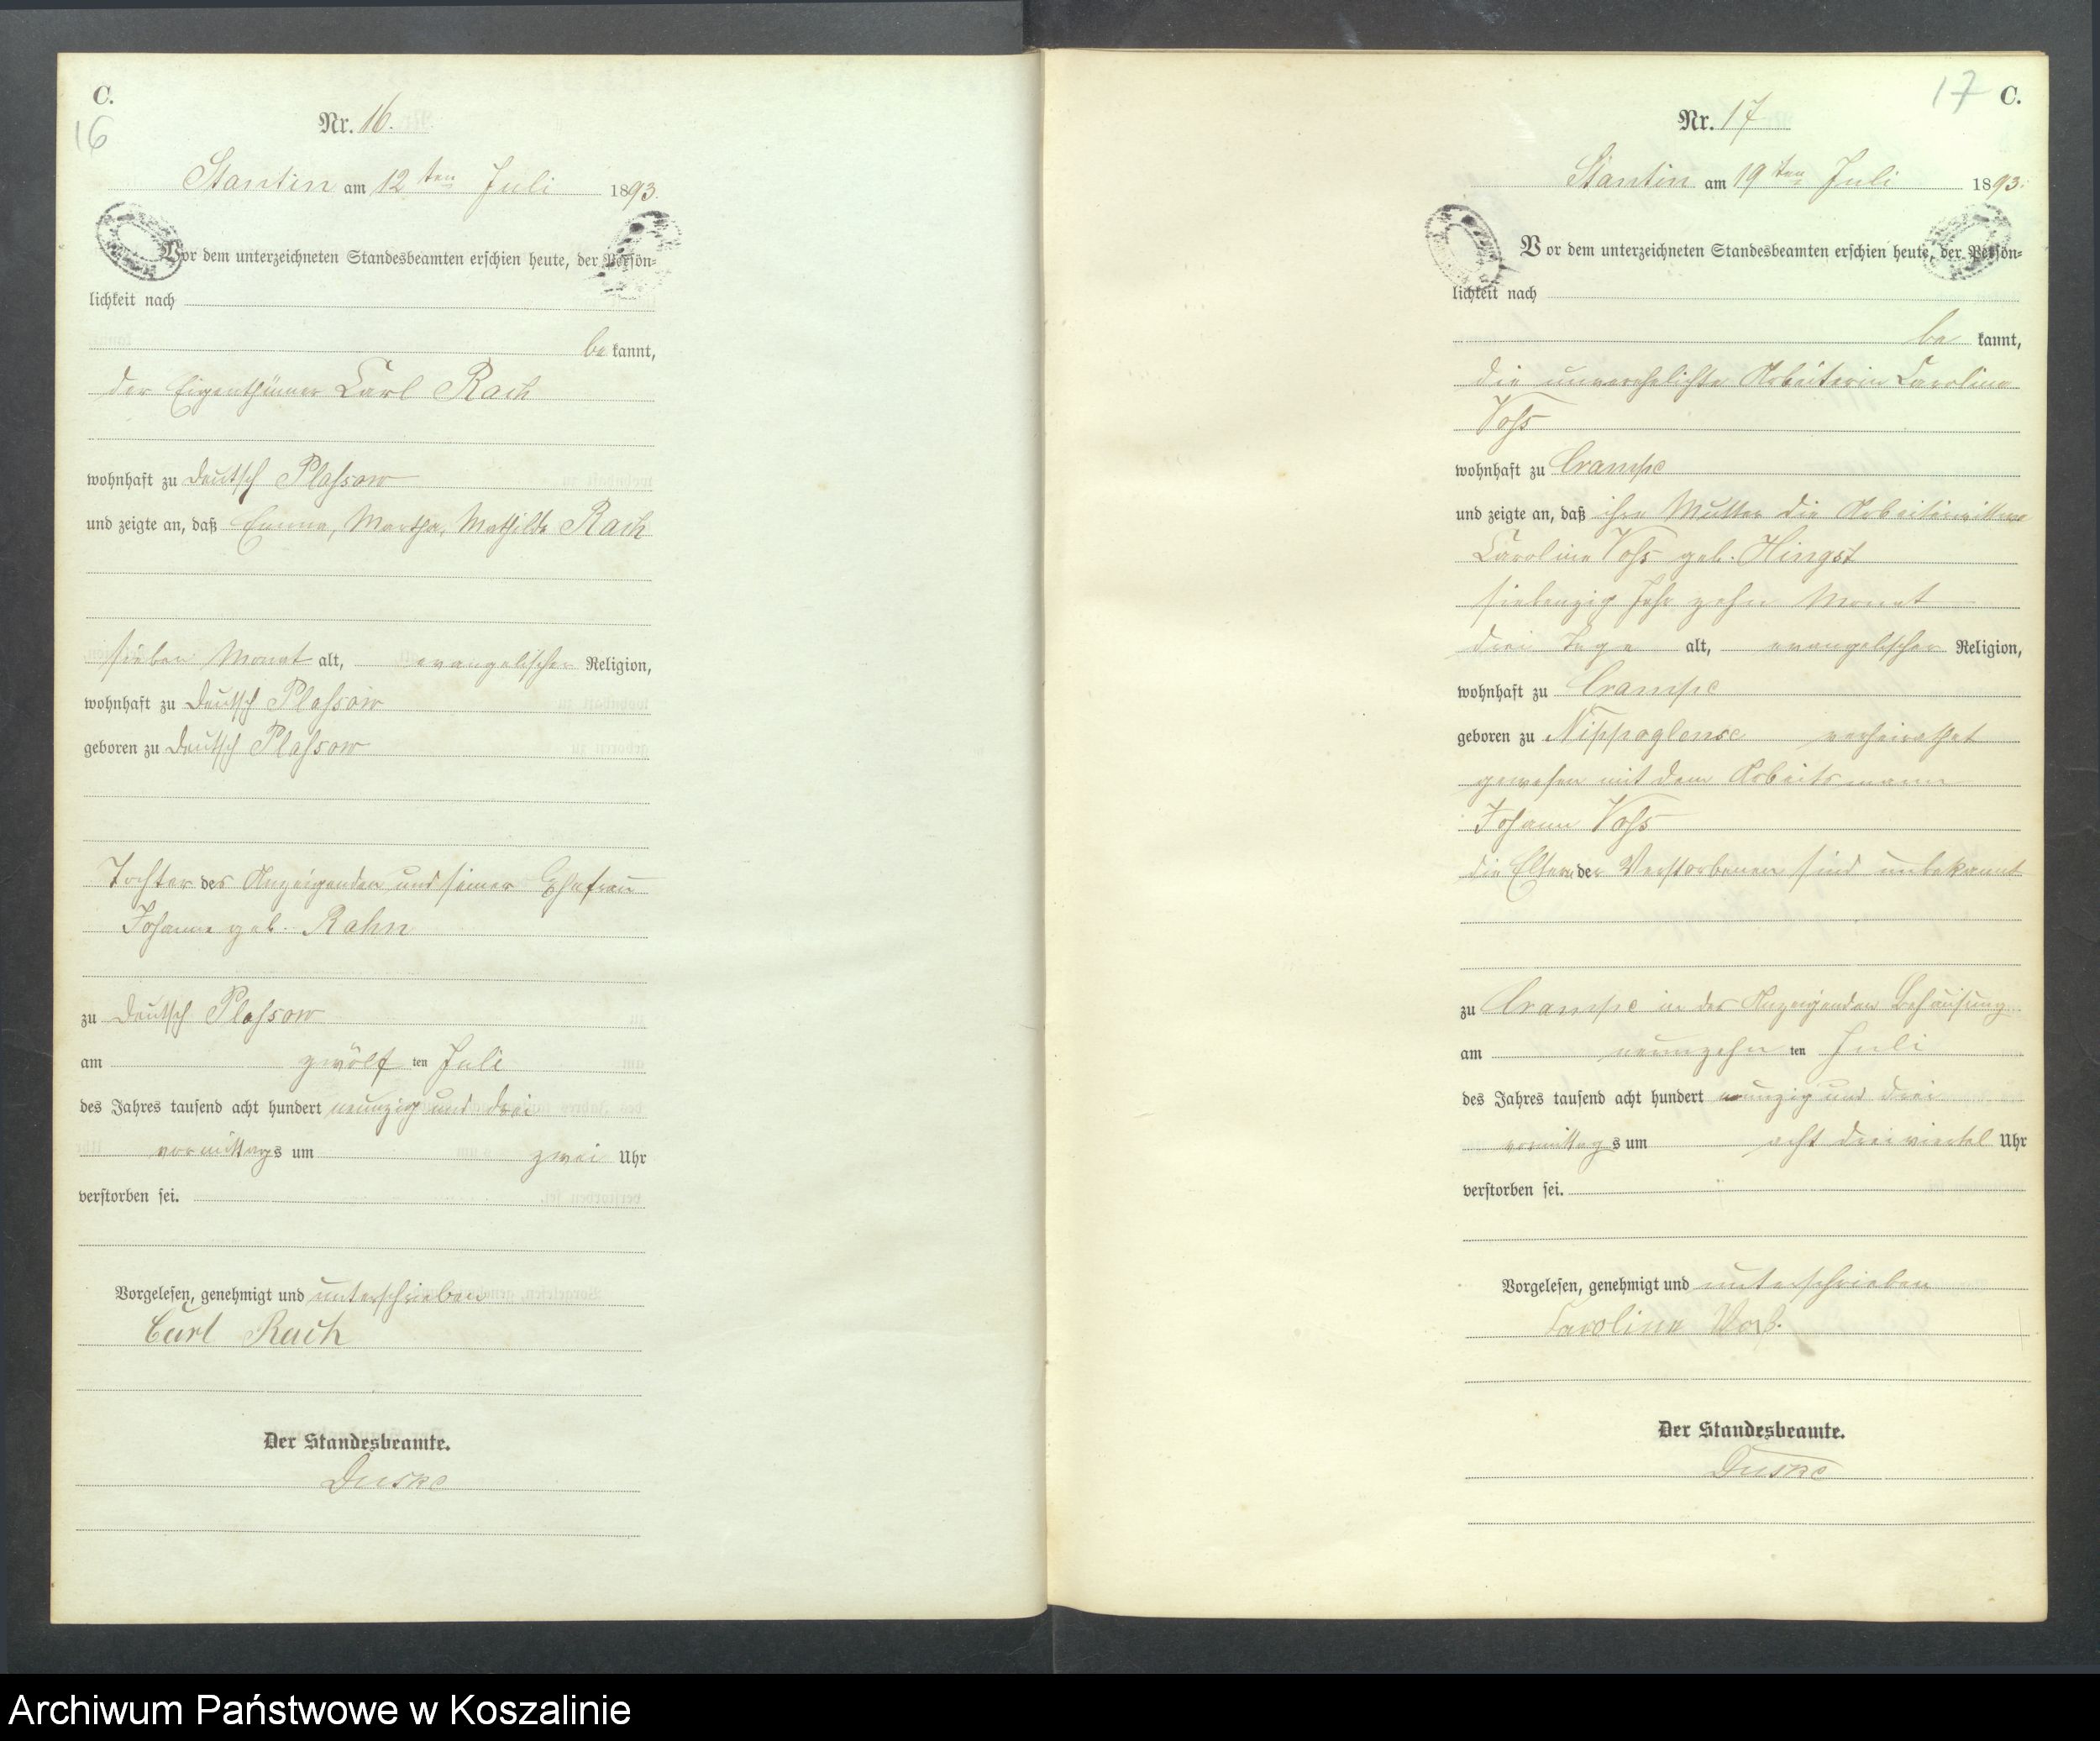 C.
16
Nr. 16.
Stantin am 12 ten Juli 1893.
Vor dem unterzeichneten Standesbeamten erschien heute, der Persön=
lichkeit nach
be kannt,
der Eigenthümer Carl Rach
wohnhaft zu Deutsch Plassow
und zeigte an, daß Emma, Martha, Mathilde Rach
sieben Monat alt, evangelischer Religion,
wohnhaft zu Deutsch Plassow
geboren zu Deutsch Plassow
Tochter des Anzeigenden und seiner Ehefrau
Johanne geb. Rahn
zu Deutsch Plassow
am zwölf ten Juli
des Jahres tausend acht hundert neunzig und drei
vormittags um zwei Uhr
verstorben sei.
Vorgelesen, genehmigt und unterschrieben
Carl Rach
Der Standesbeamte.
Duske
17 C.
Nr. 17
Stantin am 19 ten Juli 1893.
Vor dem unterzeichneten Standesbeamten erschien heute, der Persön=
lichkeit nach
be kannt,
die unverehelichte Arbeiterin Caroline
Voss
wohnhaft zu Crampe
und zeigte an, daß ihre Mutter die Arbeiterwittwe
Caroline Voss geb. Hingst
siebenzig Jahr zehn Monat
drei Tage alt, evangelischer Religion,
wohnhaft zu Crampe
geboren zu Nippoglense verheirathet
gewesen mit dem Arbeitsmann
Johann Voss
die Eltern der Verstorbenen sind unbekannt
zu Crampe in der Anzeigenden Behausung
am neunzehn ten Juli
des Jahres tausend acht hundert neunzig und drei
vormittags um acht dreiviertel Uhr
verstorben sei.
Vorgelesen, genehmigt und unterschrieben
Caroline Voß.
Der Standesbeamte.
Duske
Archiwum Państwowe w Koszalinie